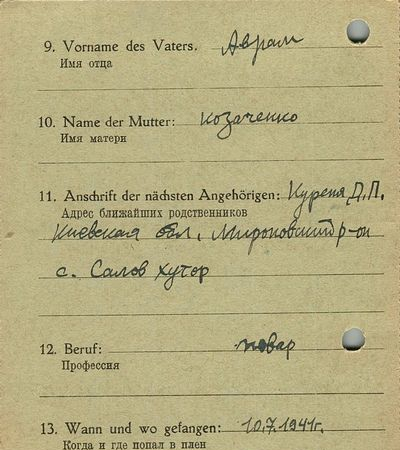 9. Vorname des Vaters. Аврам
Имя отца
10. Name der Mutter: козаченко
Имя матери
11. Anschrift der nächsten Angehörigen: Куреня, Д.П.
Адрес ближайших родственников
Киевская обл. Мироновский р-он
с. Салов хутор
12. Beruf: повар
Профессия
13. Wann und wo gefangen: 10.7.1941г.
Когда и где попал в плен